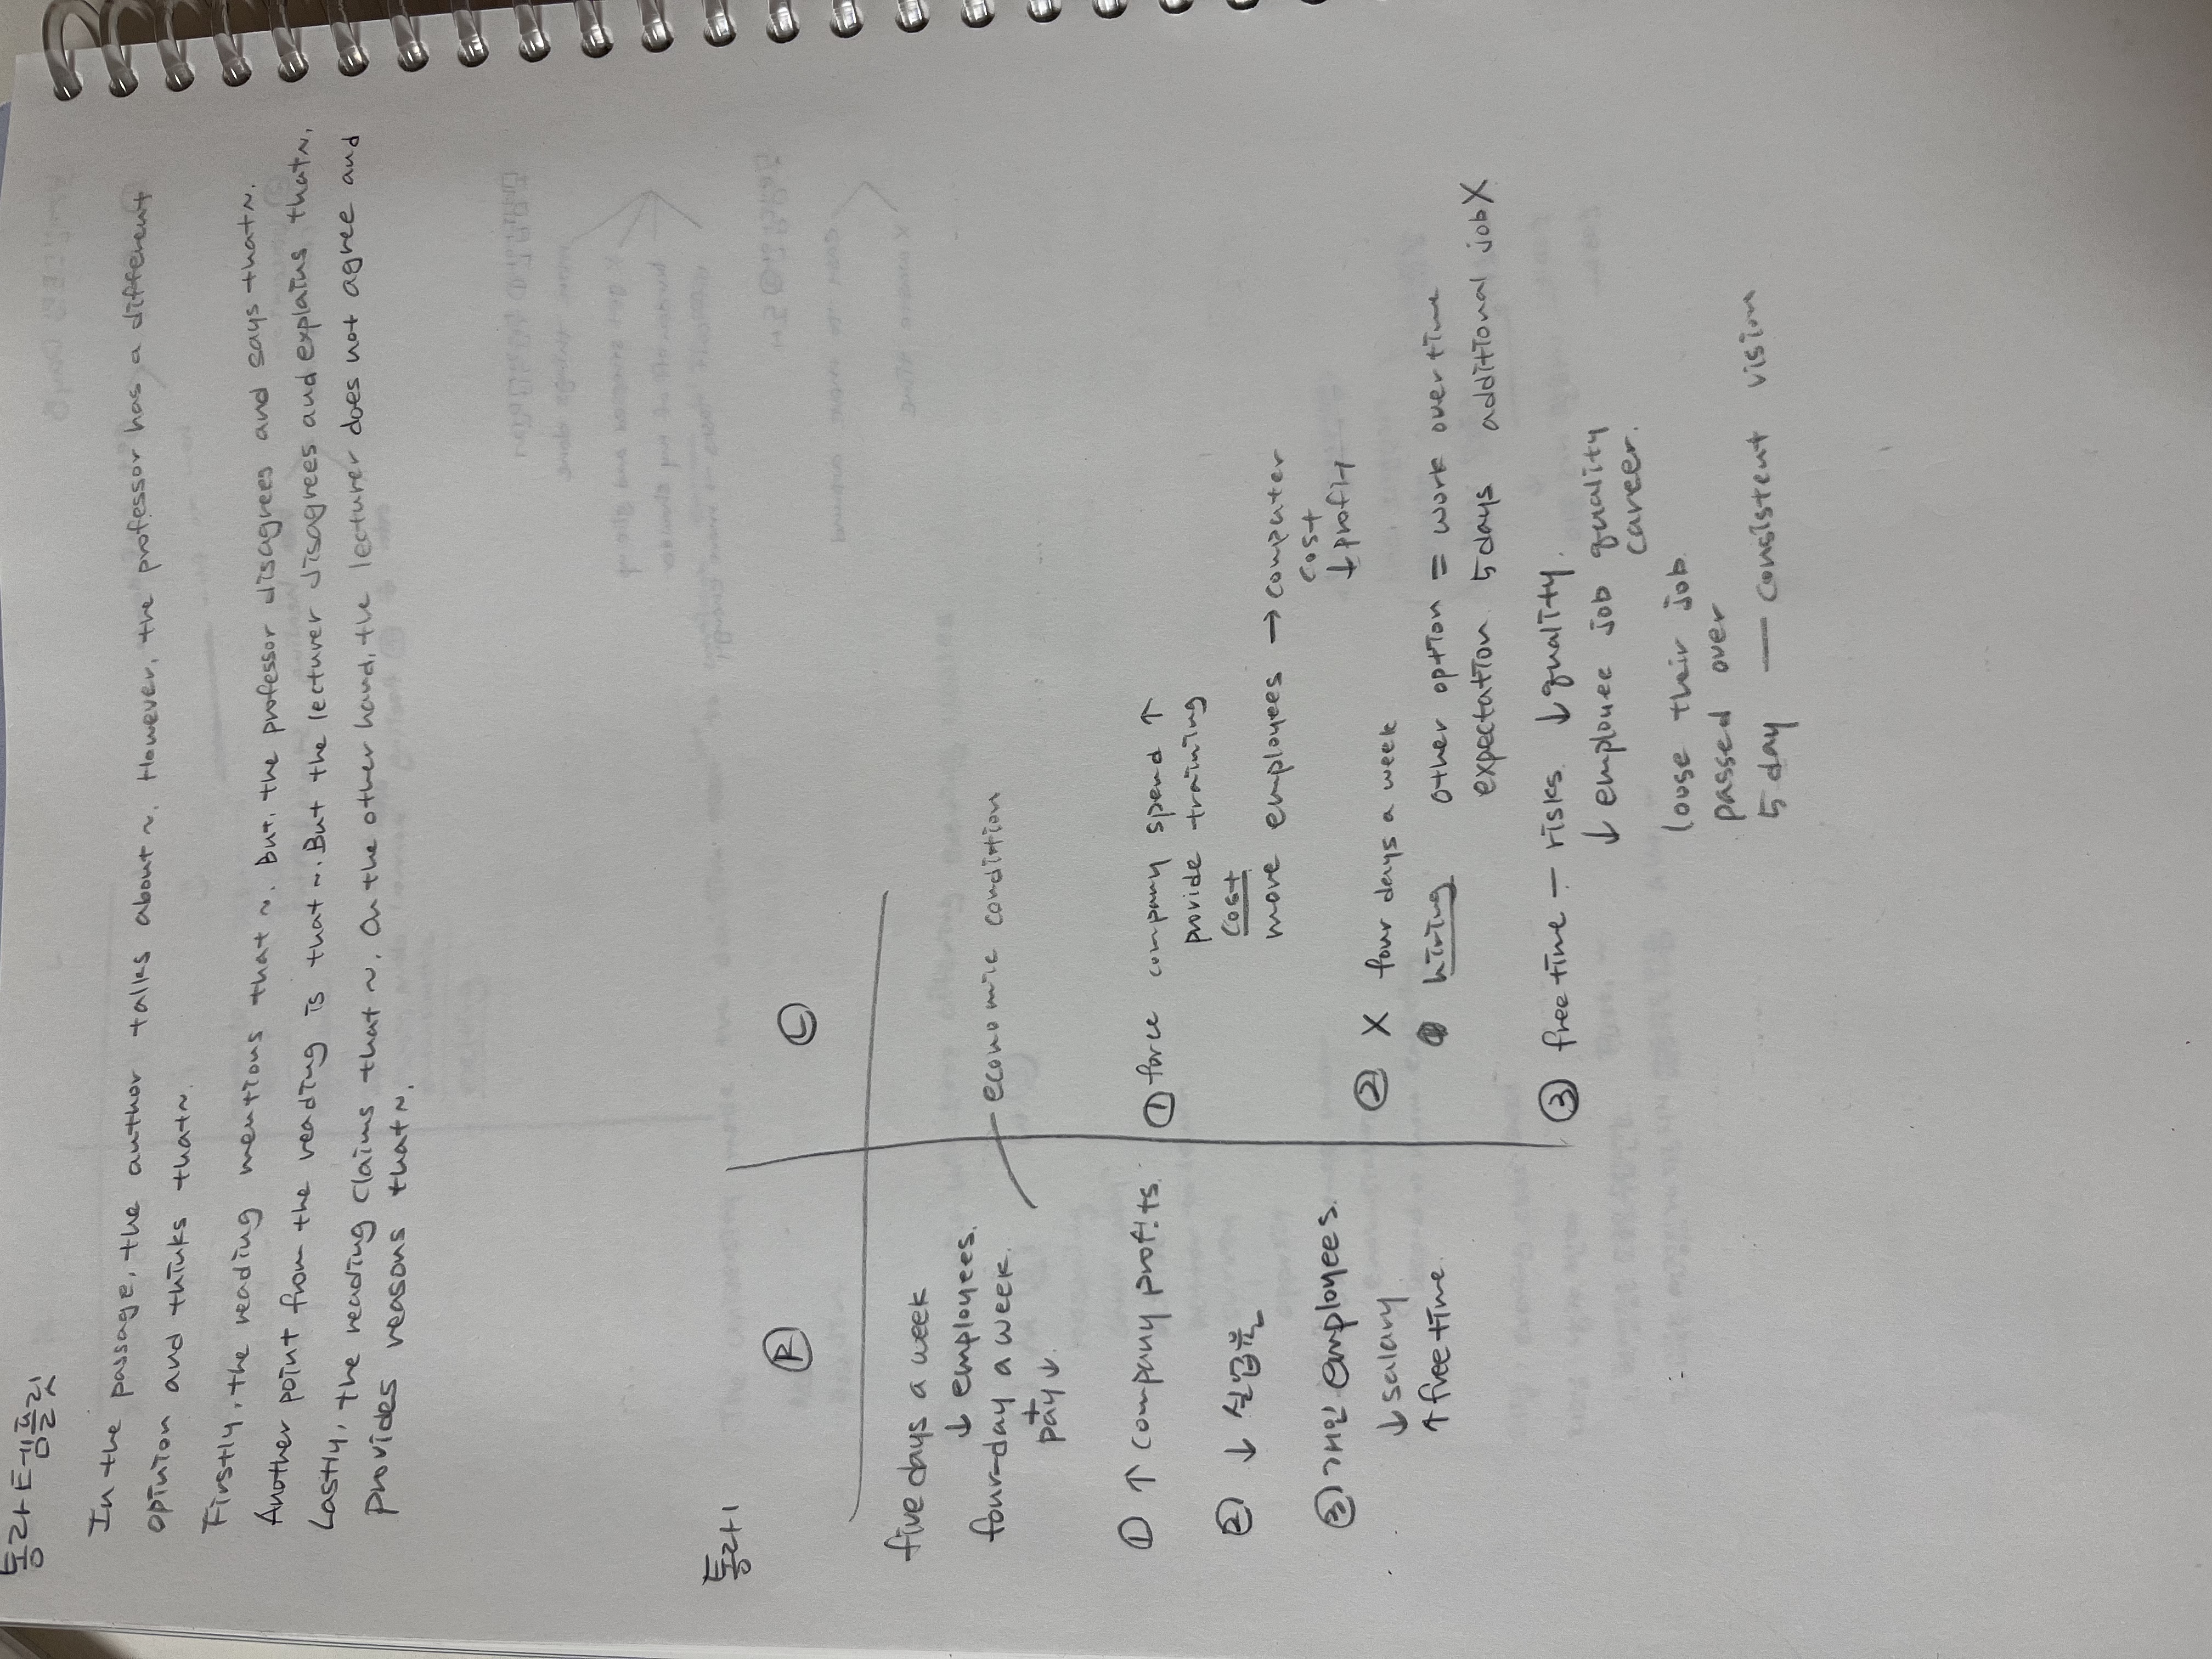 통라템플릿
In the passage, the author talks about ~. However, the professor has a different
opinion and thinks that~.
Firstly, the reading mentions that ~. But, the professor disagrees and says that~.
Another point from the reading is that ~. But the lecturer disagrees and explains that~.
Lastly, the reading claims that ~. On the other hand, the lecturer does not agree and
provides reasons that~.
통라1
Ⓡ
five days a week
↓ employees.
four-day a week.
+
pay↓.
① ↑ company profits.
② ↓ 실업률
③ 개인 employees.
↓ salary
↑ free time.
Ⓛ
economic condition
① force company spend ↑
provide training
cost
more employees → computer
cost
↓ profit
② X four days a week
hiring other option = work overtime
expectation 5 days additional job X
③ free time – risks. ↓ quality.
↓ employee job quality
career.
louse their job.
passed over
5 day — consistent vision